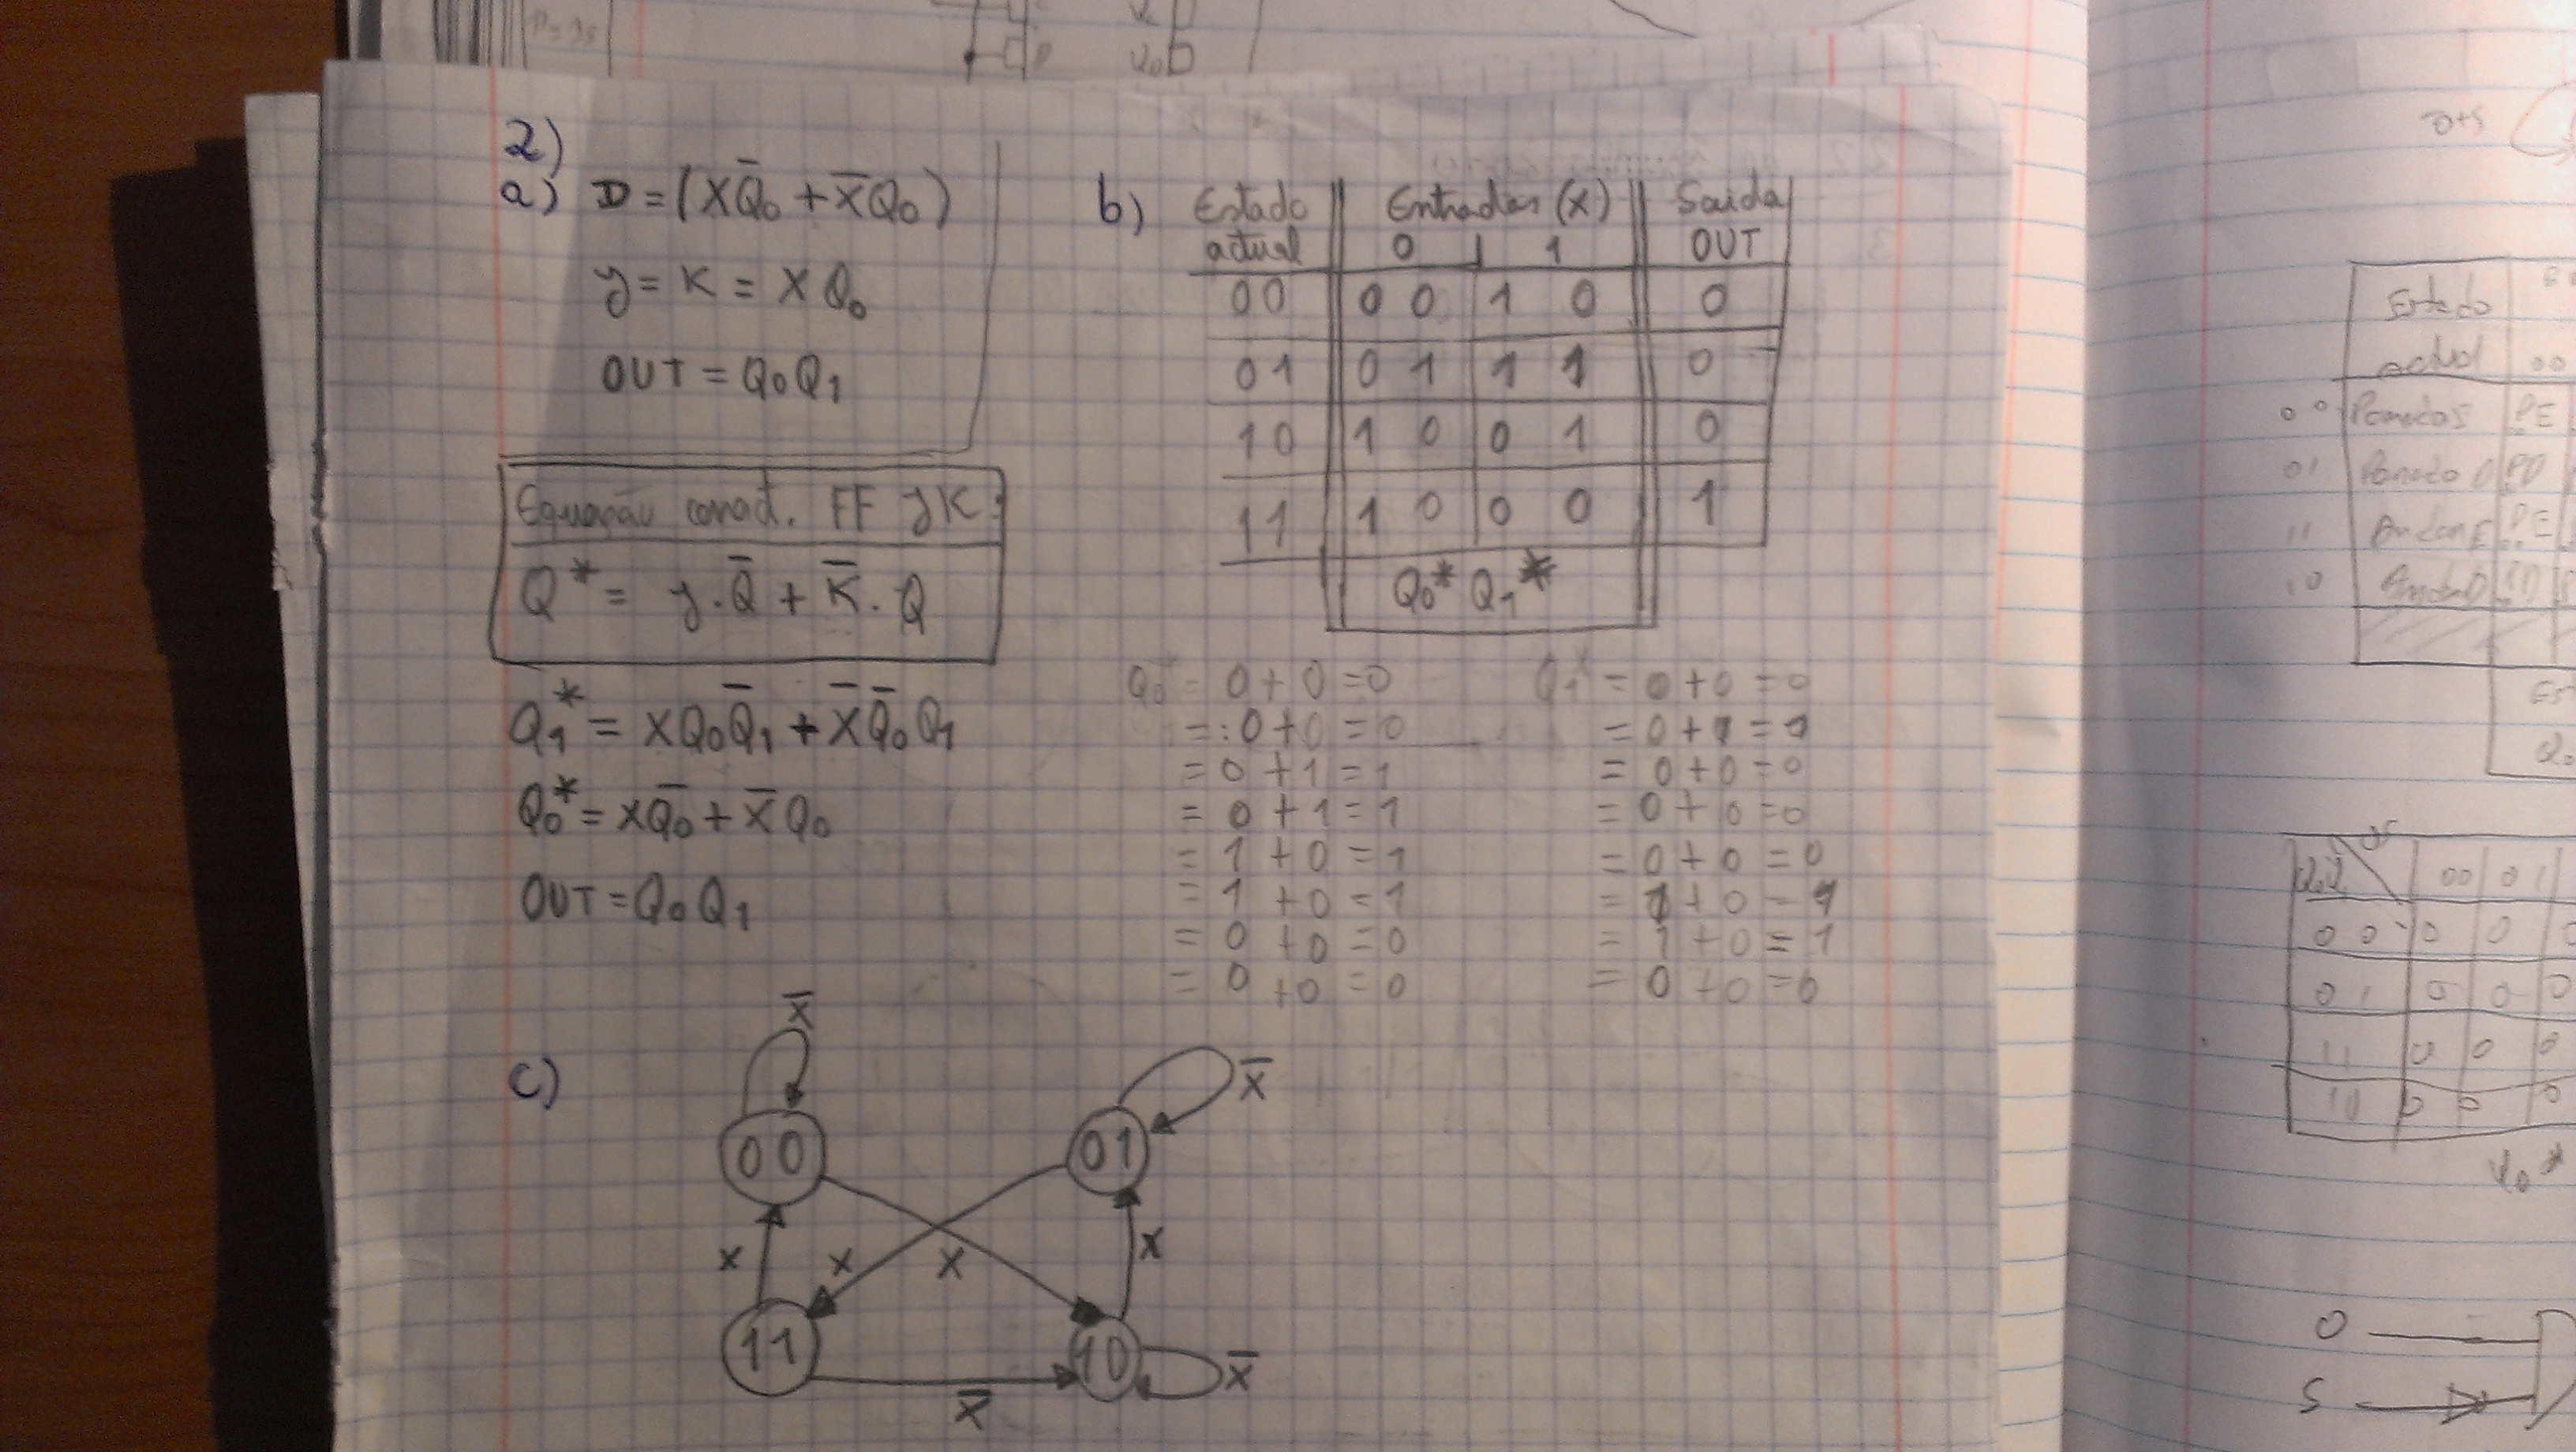 2)
a) D = (XQ̄₀ + X̄Q₀)
y = K = X Q₀
OUT = Q₀Q₁
Equação caract. FF yK:
Q* = y.Q̄ + K̄.Q
Q₁* = XQ₀Q̄₁ + X̄Q̄₀Q₁
Q₀* = XQ̄₀ + X̄Q₀
OUT = Q₀Q₁
b) Estado Entradas (X) Saida
actual 0 | 1 OUT
00 0 0 1 0 0
01 0 1 1 1 0
10 1 0 0 1 0
11 1 0 0 0 1
Q₀* Q₁*
Q₀* = 0 + 0 = 0 Q₁* = 0 + 0 = 0
= 0 + 0 = 0 = 0 + 1 = 1
= 0 + 1 = 1 = 0 + 0 = 0
= 0 + 1 = 1 = 0 + 0 = 0
= 1 + 0 = 1 = 0 + 0 = 0
= 1 + 0 = 1 = 1 + 0 = 1
= 0 + 0 = 0 = 1 + 0 = 1
= 0 + 0 = 0 = 0 + 0 = 0
c)
X̄
X̄
00 01
X X X X
11 10 X̄
X̄
Estado
actual 00
00 Parado E PE
01 Parado D PD
11 Andar E PE
10 Andar D
00 01
00 0 0 0
01 0 0 0
11 0 0 0
10 0 0 0
O
S